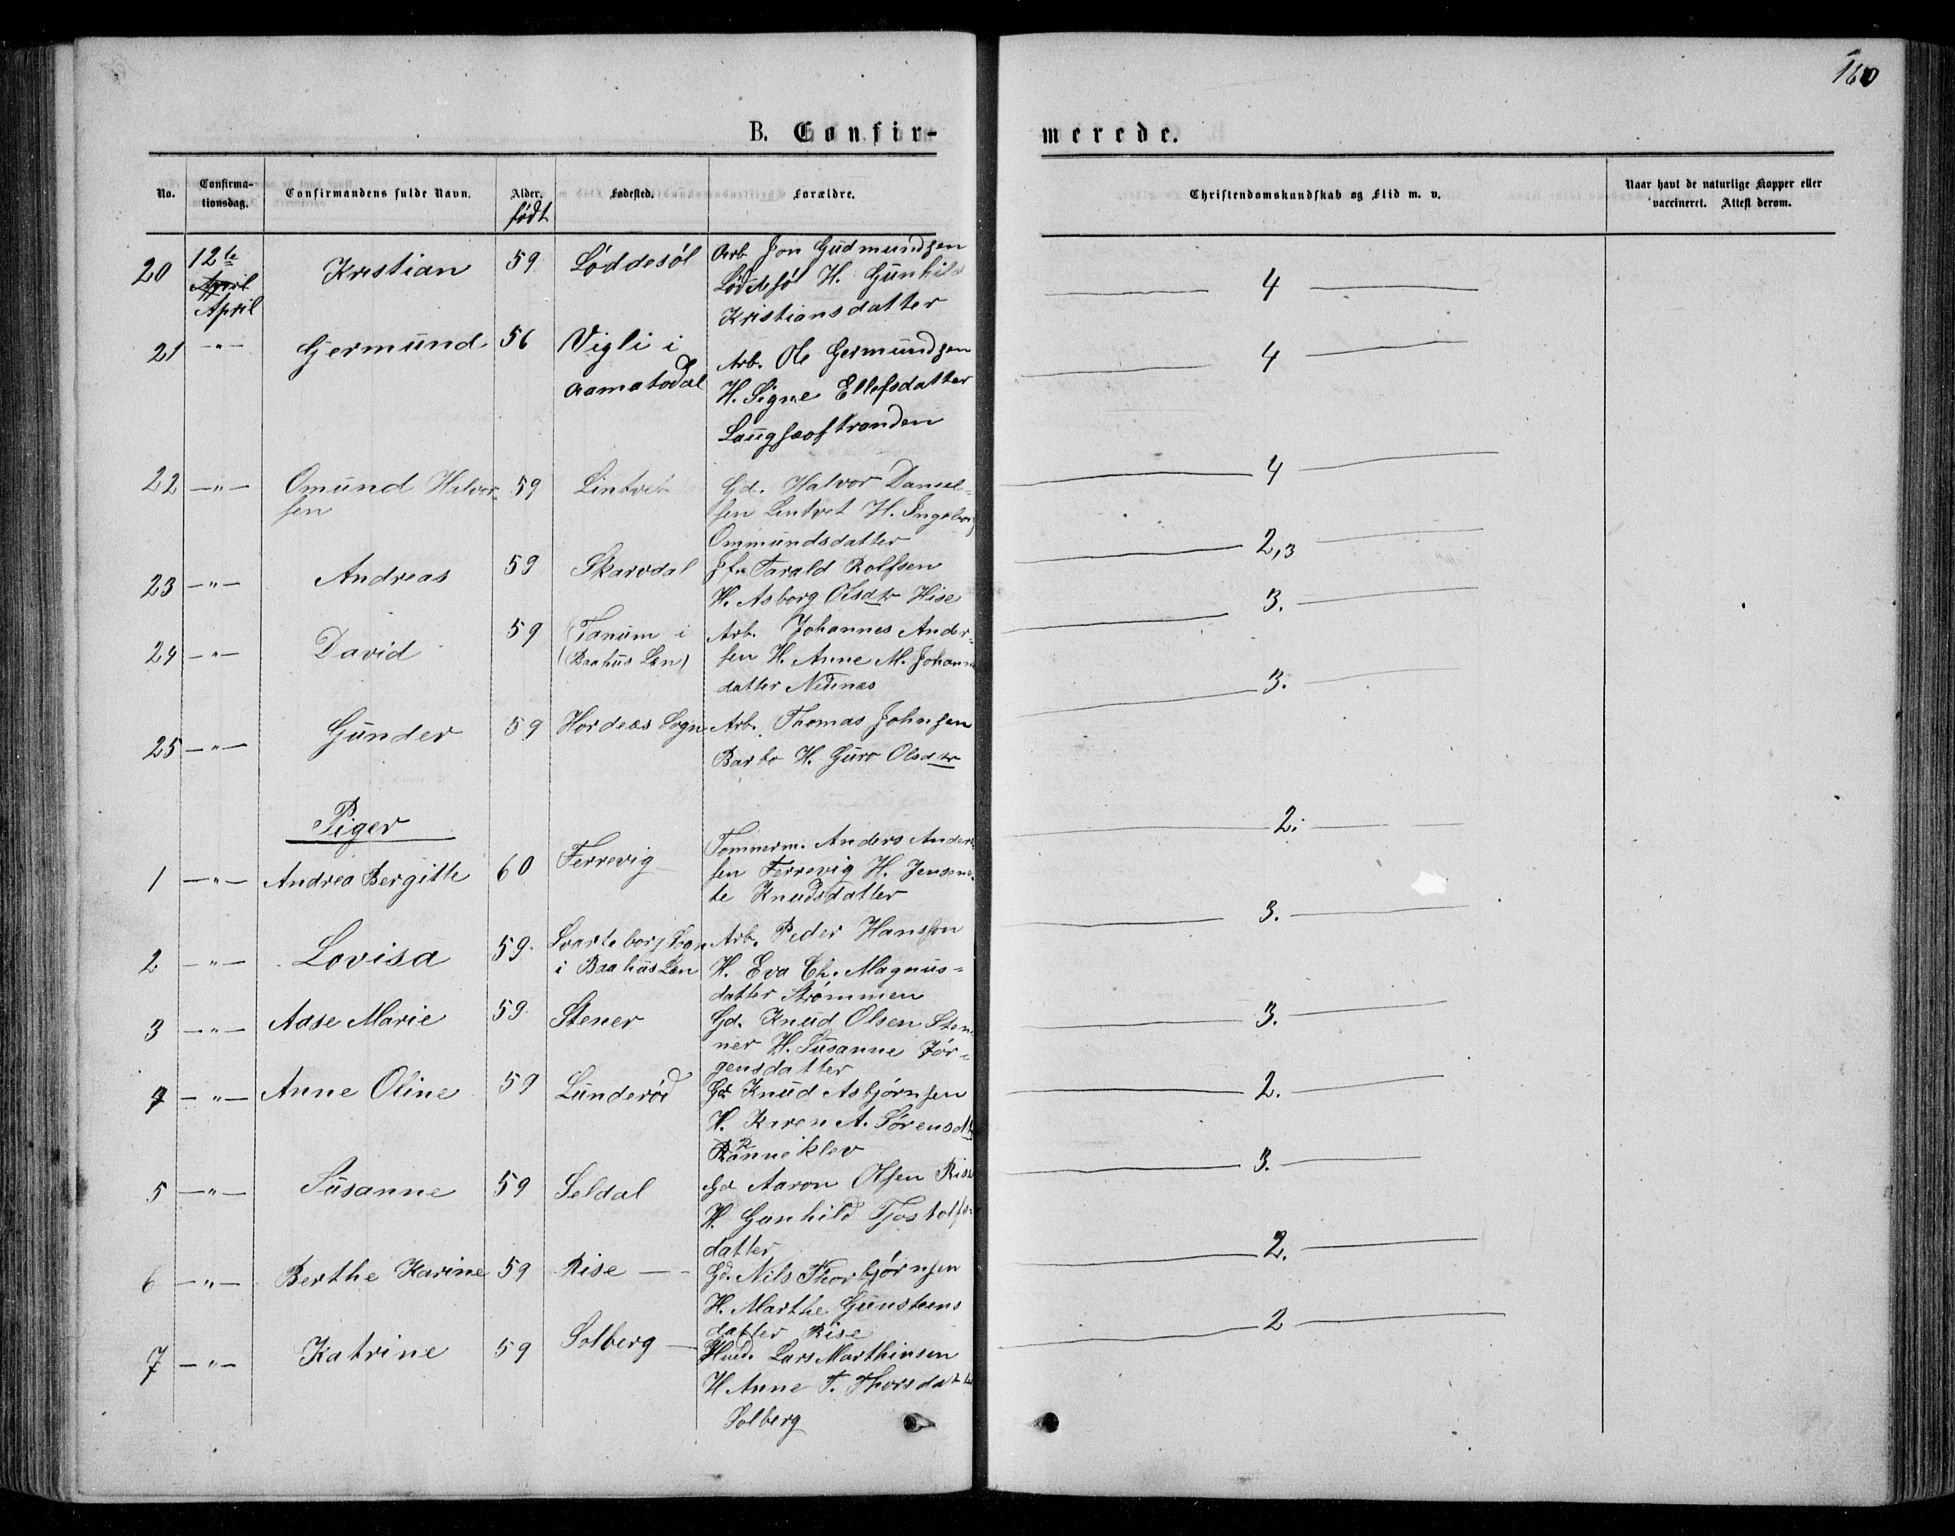 160
B. Confirmerede.
No. Confirmationsdag. Confirmandens fulde Navn. Alder. født Fødested. Forældre. Christendomskundskab og Flid m. v. Naar havt de naturlige Kopper eller vaccineret. Attest derom.
20 12te April April Kristian 59 Løddesøl Arb. Jon Gudmundsen
Løddesøl H. Gunhild
Kristiansdatter 4
21 —"— Germund 56 Vigli i
Aamatsdal Arb. Ole Germundsen
H. Signe Ellefsdatter
Laugsæstranden 4
22 —"— Omund Halvor-
sen 59 Lintvet Gd. Halvor Daniel-
sen Lintvet H. Ingeborg
Ommundsdatter 4
23 —"— Andreas 59 Skarvdal Tarald Rolfsen
H. Asborg Olsdtr Hise 2,3
24 —"— David 59 Tanum i
(Baahus Len) Arb. Johannes Ander-
sen H. Anne M. Johann
datter Nedenæs 3.
25 —"— Gunder 59 Hordeas Sogn Arb. Thomas Johnsen
Barbo H. Guro Olsdtr 3.
Piger
1 —"— Andrea Bergitte 60 Ferrevig Tømmerm. Anders Ander-
sen Ferrevig H. Jensine-
te Knudsdatter 2.
2 —"— Lovisa 59. Svarteborg Sogn
i Baahus Len Arb. Peder Hanssen
H. Eva Ch. Magnus-
datter Strømmen 3.
3 —"— Aase Marie 59. Stener Gd. Knud Olsen Ste-
ner H. Susanne Jør-
gensdatter 3.
4 —"— Anne Oline 59 Lunderød Gd. Knud Asbjørnsen
H. Karen A. Sørensdtr
Ranneklev 2.
5 —"— Susanne 59 Seldal Gd. Aaron Olsen Rise
H. Gunhild Tjostolfs-
datter 3.
6 —"— Berthe Karine 59 Rise — Gd. Nils Thorbjørnsen
H. Marthe Gunsteens
datter Rise 2.
7 —"— Katrine 59 Solberg — Husd. Lars Marthinsen
H Anne T. Thorsdatter
Solberg 2